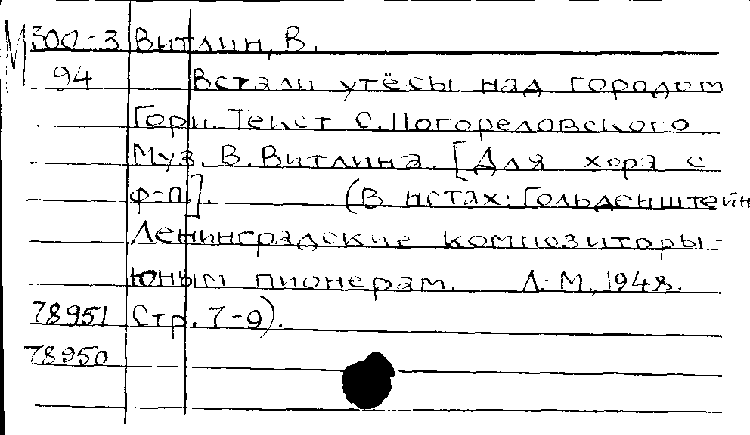 М 300-3 Витлин, В.
94 Встали утёсы над городом
Гори. Текст С. Погореловского
Муз. В. Витлина. [Для хора с
ф-п.]. (В нотах: Гольденштейн
Ленинградские композиторы-
юным пионерам. Л.-М., 1948.
78951 Стр. 7-9).
78950